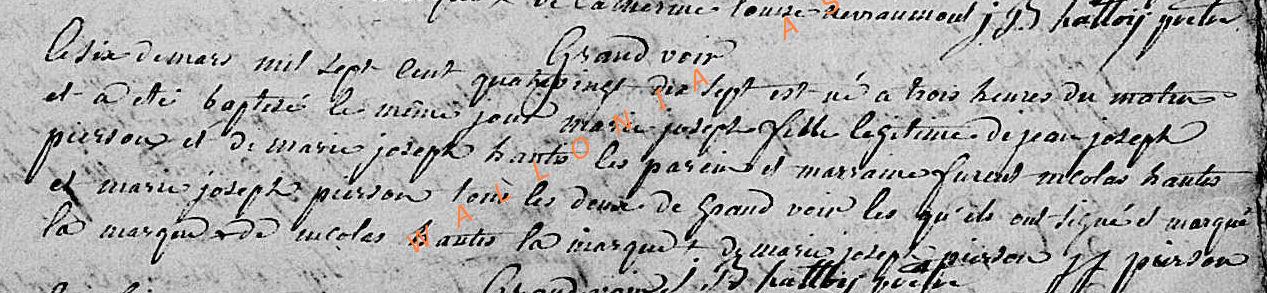 de Catherine louise devraumont j j B halloy pretre
Grand voir
le six de mars mil sept cent quatrevingt dix sept est né a trois heures du matin
et a été baptisé le même jour marie joseph fille legitime de jean joseph
pierson et de marie joseph hantis les parein et marraine furent nicolas hantis
et marie joseph pierson tous les deux de grand voir les qu'els ont signé et marqué
la marque de nicolas hantis la marque + de marie joseph pierson jj pierson
Grand voir j B halloy pretre
WALLONIA AS